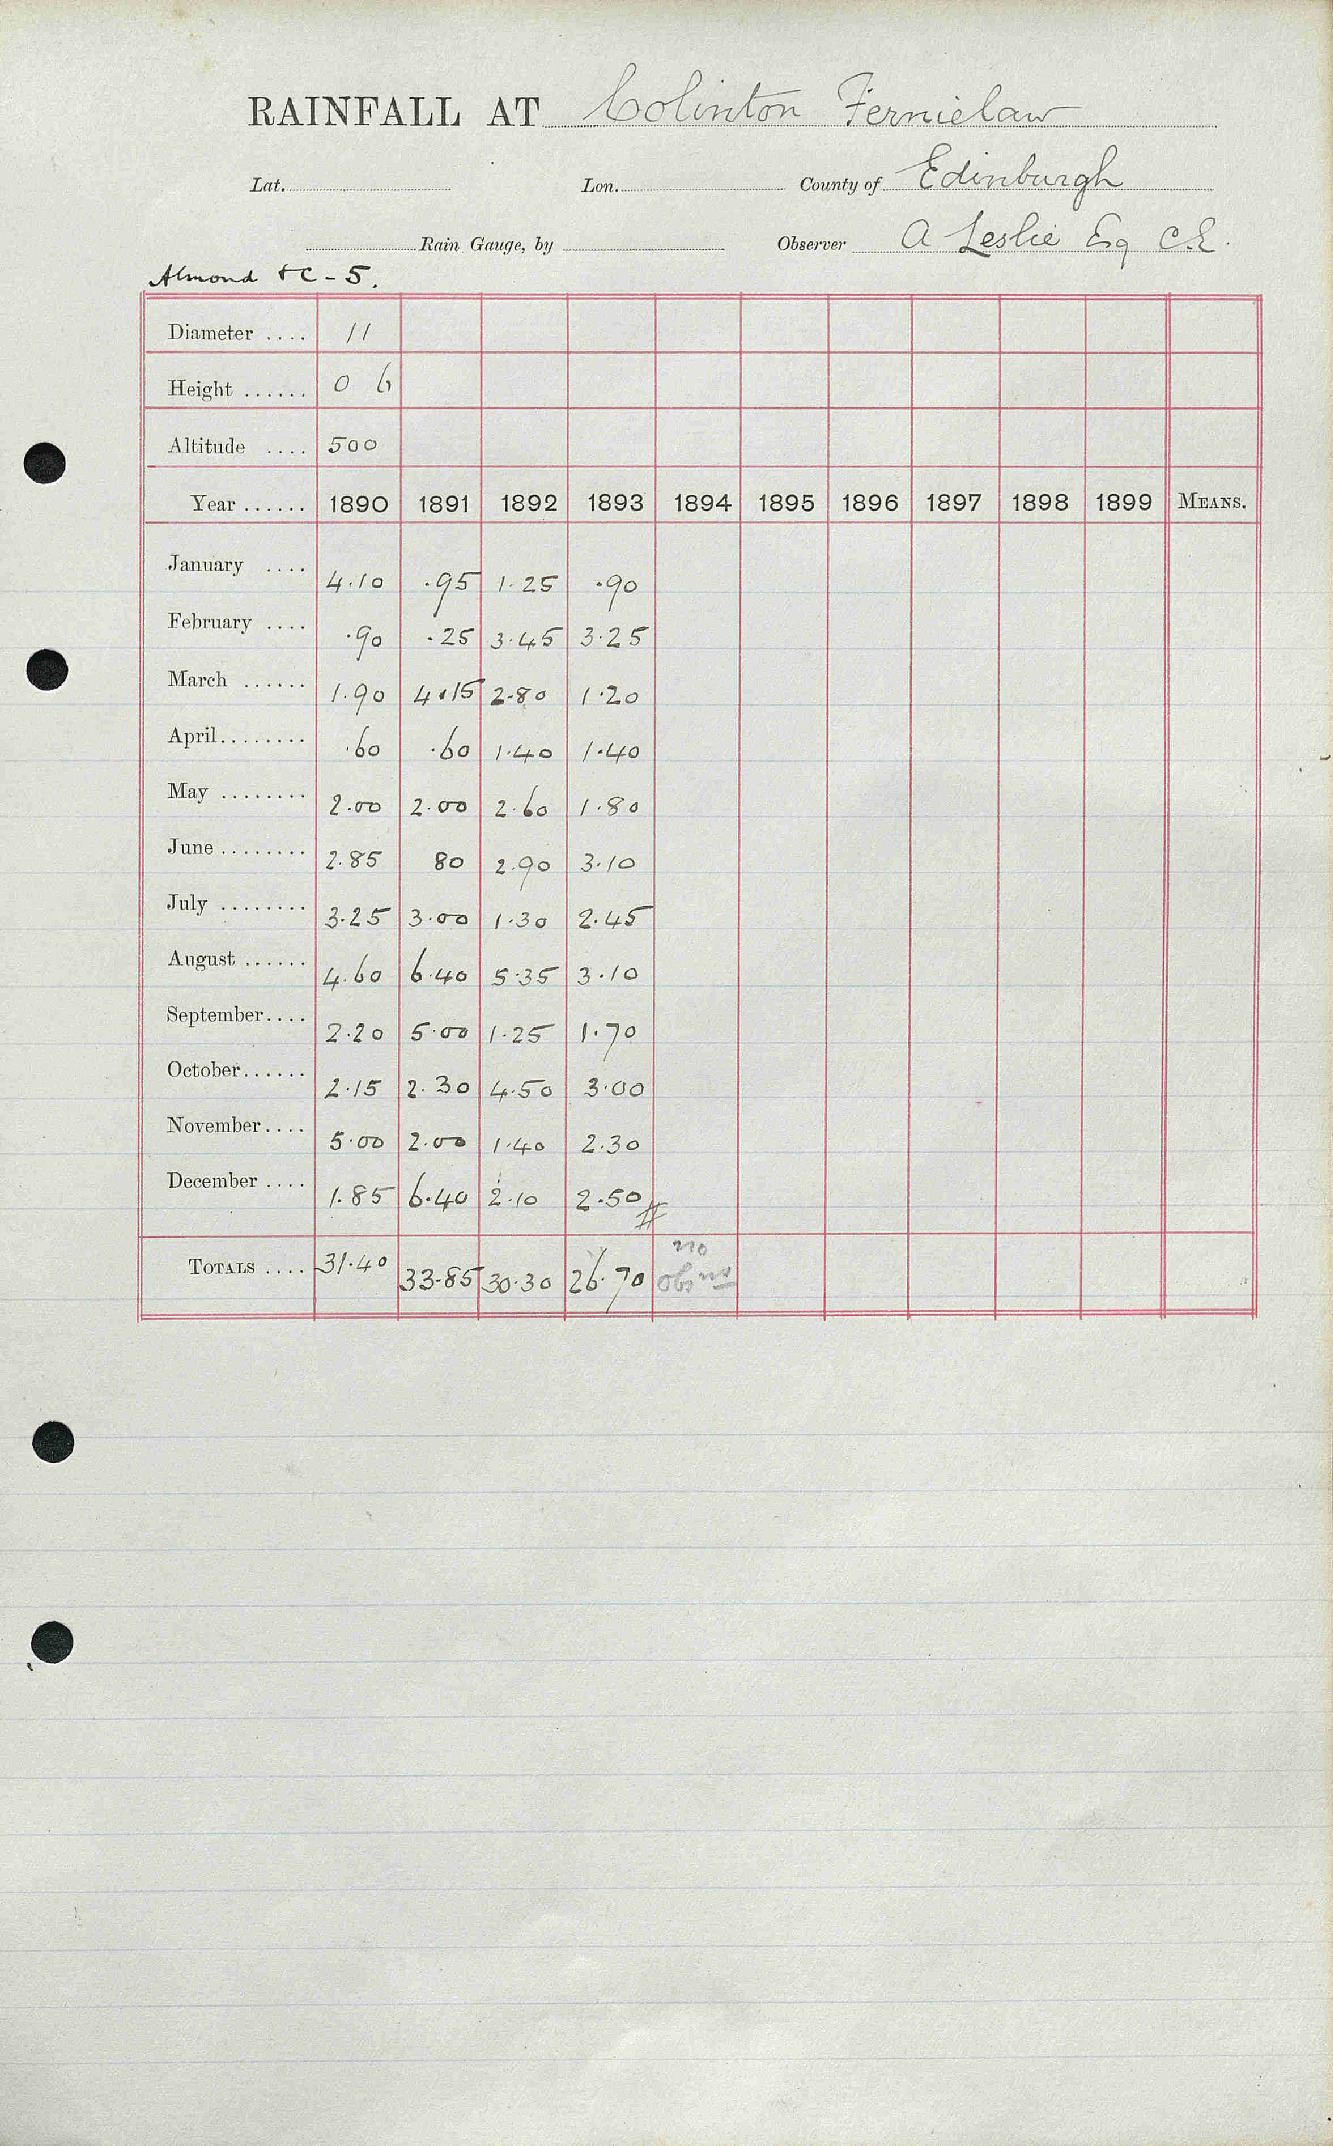 RAINFALL AT Colinton Fernielaw
Lat. Lon. County of Edinburgh
Rain Gauge, by Observer A Leslie Esq C.E.
Almond &C - 5.
Diameter .... 11
Height ...... 0 6
Altitude .... 500
Year ...... 1890 1891 1892 1893 1894 1895 1896 1897 1898 1899 MEANS.
January .... 4.10 .95 1.25 .90
February .... .90 .25 3.45 3.25
March ...... 1.90 4.15 2.80 1.20
April ........ .60 .60 1.40 1.40
May ........ 2.00 2.00 2.60 1.80
June ........ 2.85 80 2.90 3.10
July ........ 3.25 3.00 1.30 2.45
August ...... 4.60 6.40 5.35 3.10
September.... 2.20 5.00 1.25 1.70
October...... 2.15 2.30 4.50 3.00
November.... 5.00 2.00 1.40 2.30
December .... 1.85 6.40 2.10 2.50 #
TOTALS .... 31.40 33.85 30.30 26.70 no obsns